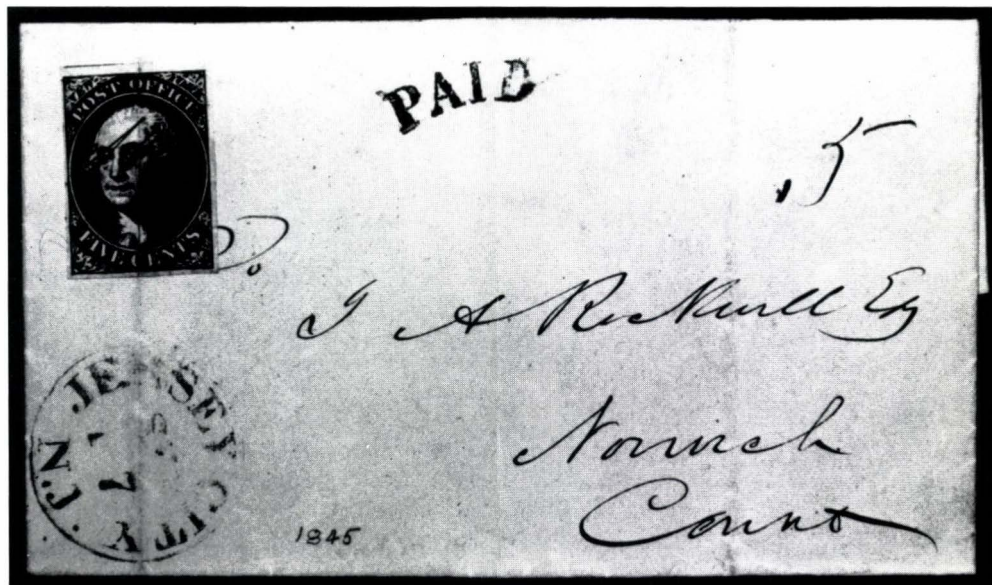 POST OFFICE
FIVE CENTS
PAID
5
J A Rockwell Esq
Norwich
Connt
JERSEY CITY N.J.
7
1845